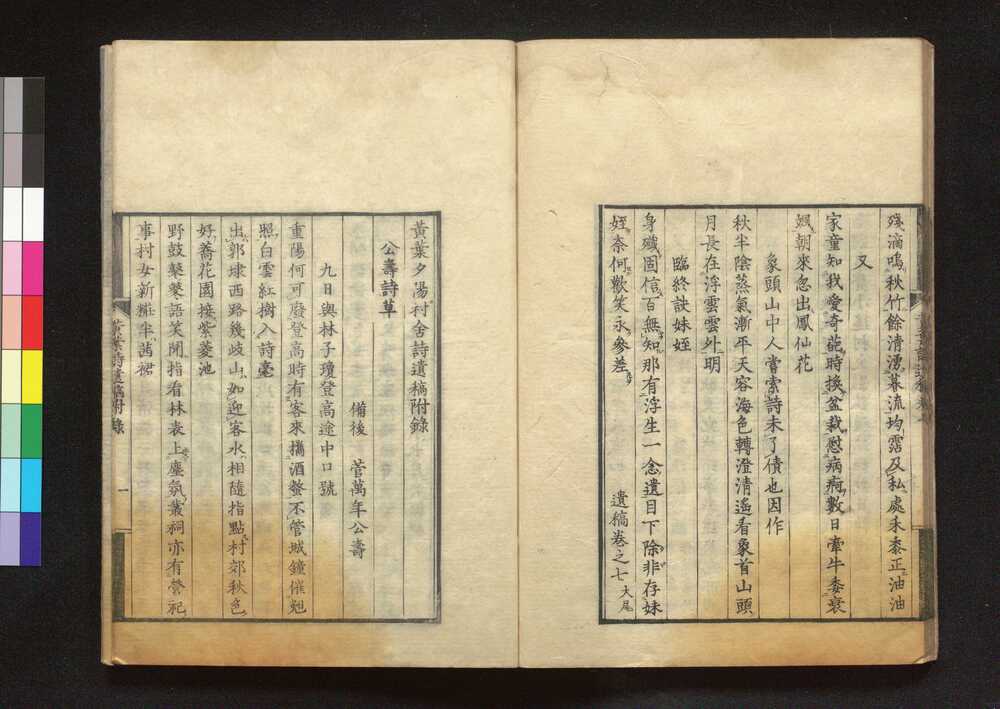 殘滴鳴秋竹餘清湧暮流均霑及私處禾黍正油油
又
家童知我愛奇葩時換盆栽慰病痾數日牽牛委衰
颯朝來忽出鳳仙花
象頭山中人嘗索詩未了債也因作
秋半陰蒸氣漸平天容海色轉澄清遙看象首山頭
月長在浮雲雲外明
臨終訣妹姪
身殲固信百無知那有浮生一念遺目下除非存妹
姪奈何歡笑永參差
遺稿卷之七大尾
黃葉夕陽村舍詩遺稿附錄
公壽詩草
備後 菅萬年公壽
九日與林子瓊登高途中口號
重陽何可廢登高時有客來攜酒螯不管城鐘催兎
照白雲紅樹入詩毫
出郭埭西路幾岐山如迎客水相隨指點村郊秋色
好蕎花園接紫菱池
野鼓鼕鼕語笑聞指看林表上塵氛叢祠亦有營祀
事村女新糚半茜裙
黃葉詩遺稿附錄
一